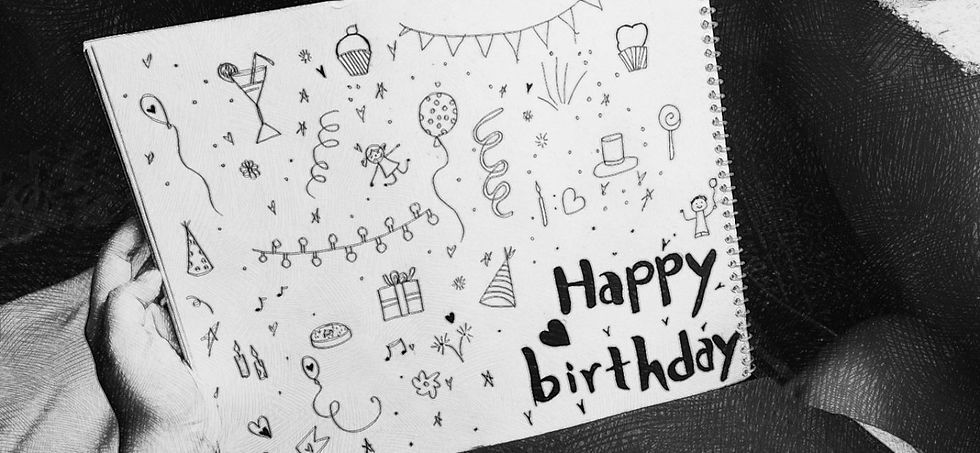 Happy
birthday